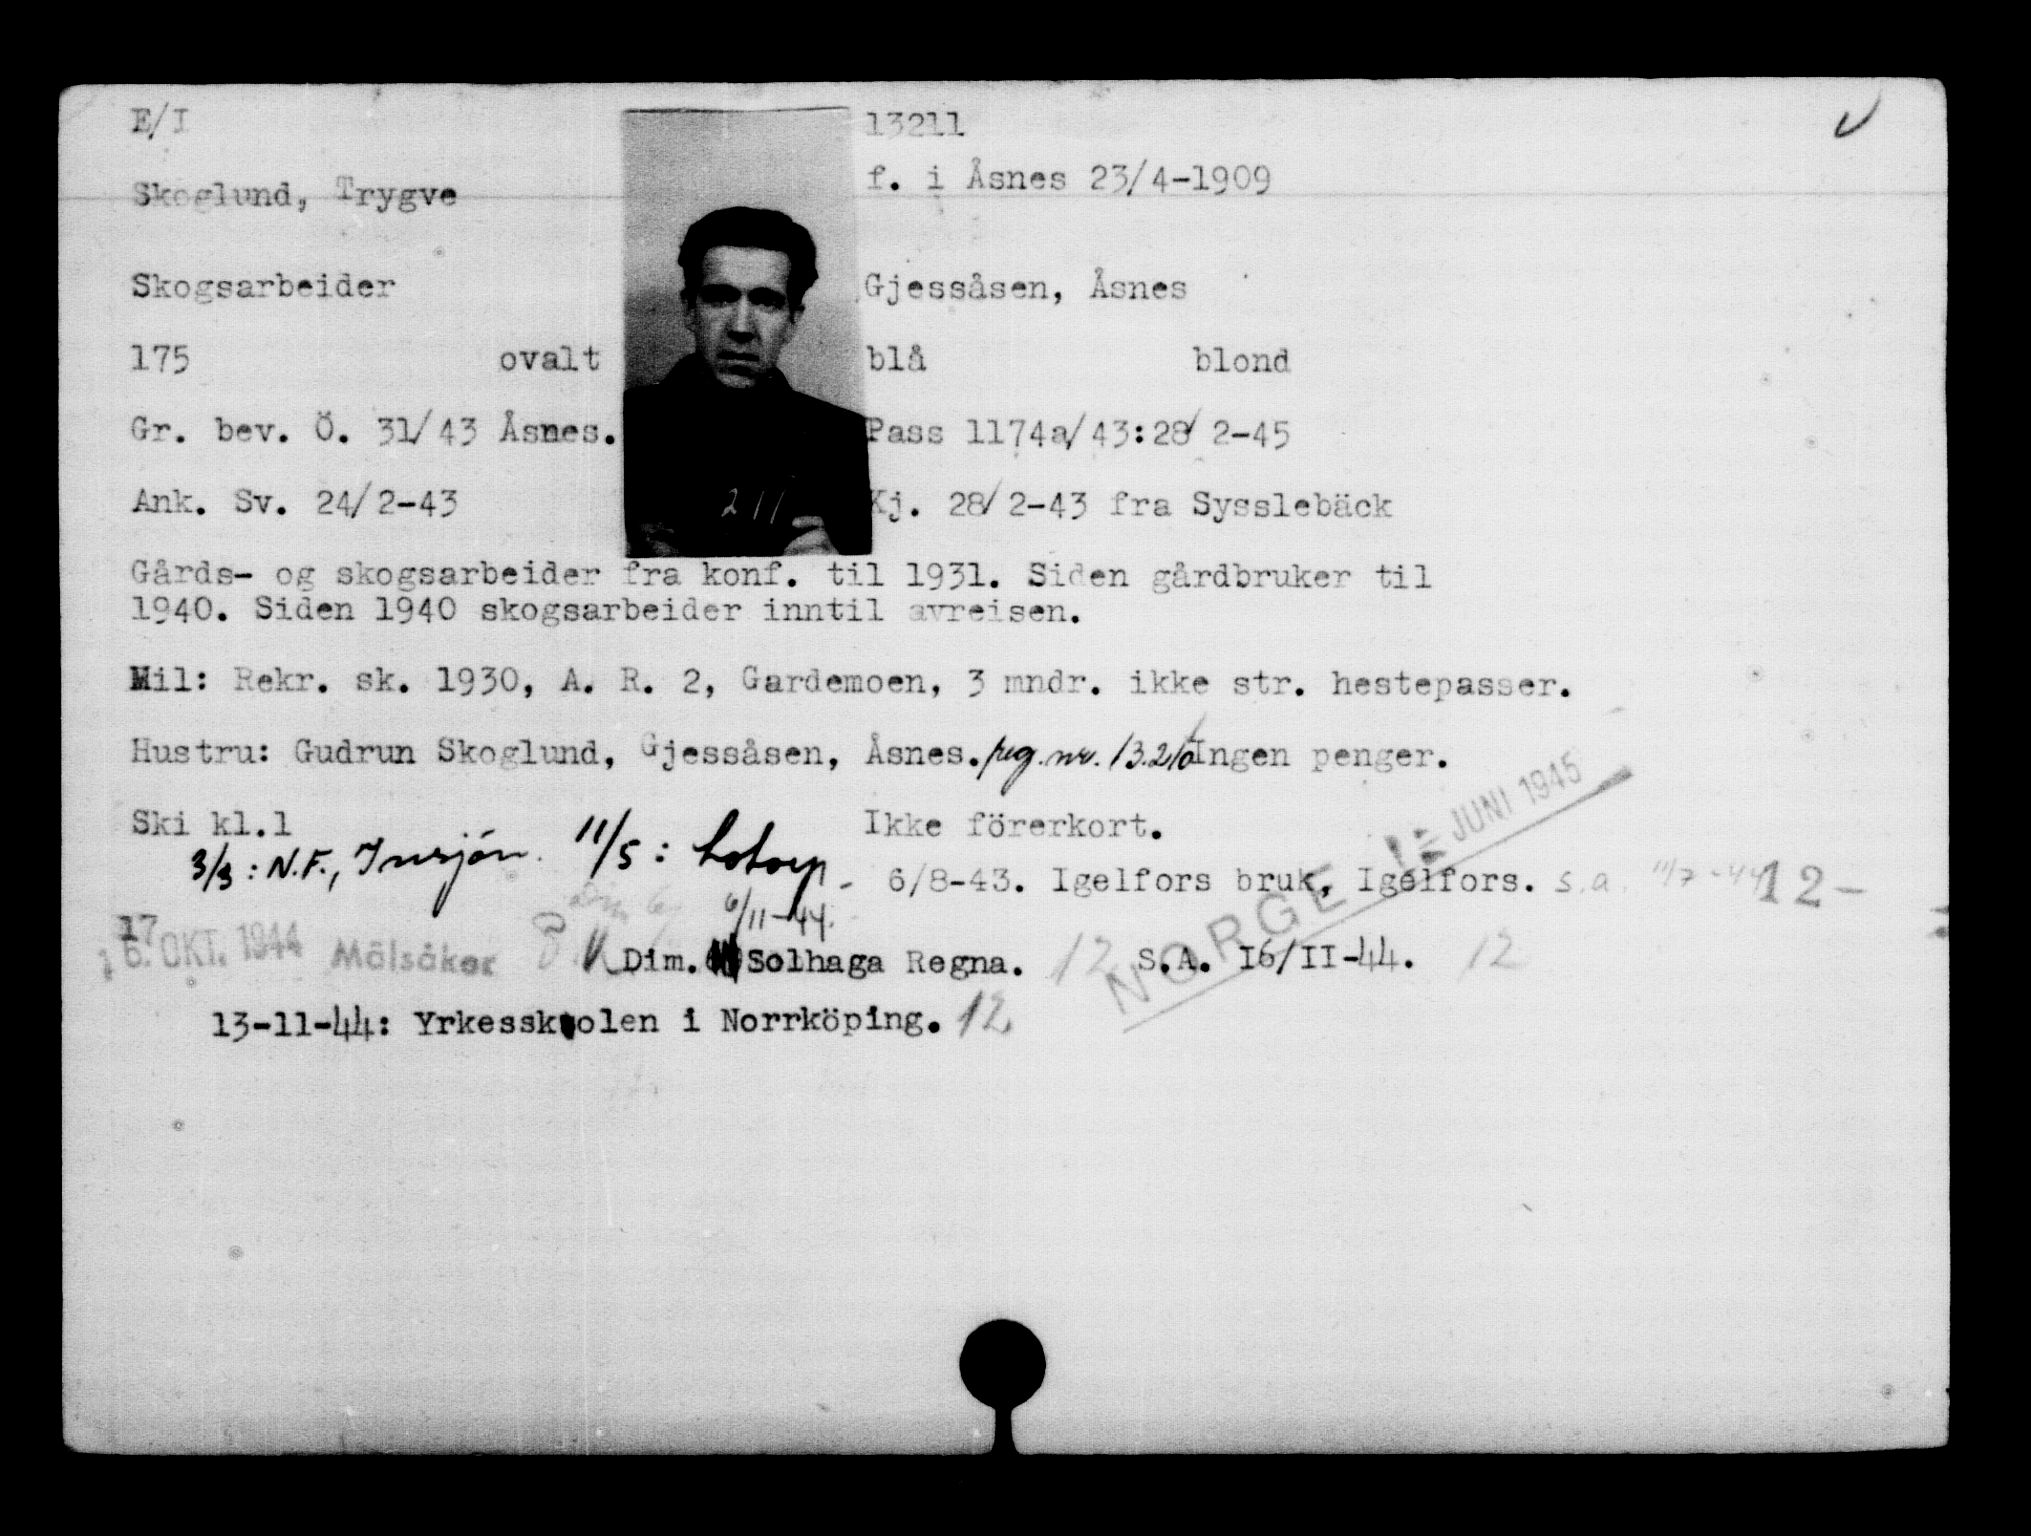 E/I 13211
f. i Åsnes 23/4-1909
Skoglund, Trygve
Skogsarbeider Gjessåsen, Åsnes
175 ovalt blå blond
Gr. bev. Ö. 31/43 Åsnes. Pass 1174a/43:28/2-45
Ank. Sv. 24/2-43 Kj. 28/2-43 fra Sysslebäck
211
Gårds- og skogsarbeider fra konf. til 1931. Siden gårdbruker til
1940. Siden 1940 skogsarbeider inntil avreisen.
Mil: Rekr. sk. 1930, A. R. 2, Gardemoen, 3 mndr. ikke str. hestepasser.
Hustru: Gudrun Skoglund, Gjessåsen, Åsnes. reg. nr. 13210 Ingen penger.
Ski kl.1 Ikke förerkort.
3/3: N.F., Insjön. 11/5: Lotorp - 6/8-43. Igelfors bruk, Igelfors. s.a. 11/7-44 12-
NORGE JUNI 1945
6/11-44.
17
16. OKT. 1944 Mälsåker Dim. Solhaga Regna. 12 S.A. 16/11-44. 12
13-11-44: Yrkesskolen i Norrköping. 12